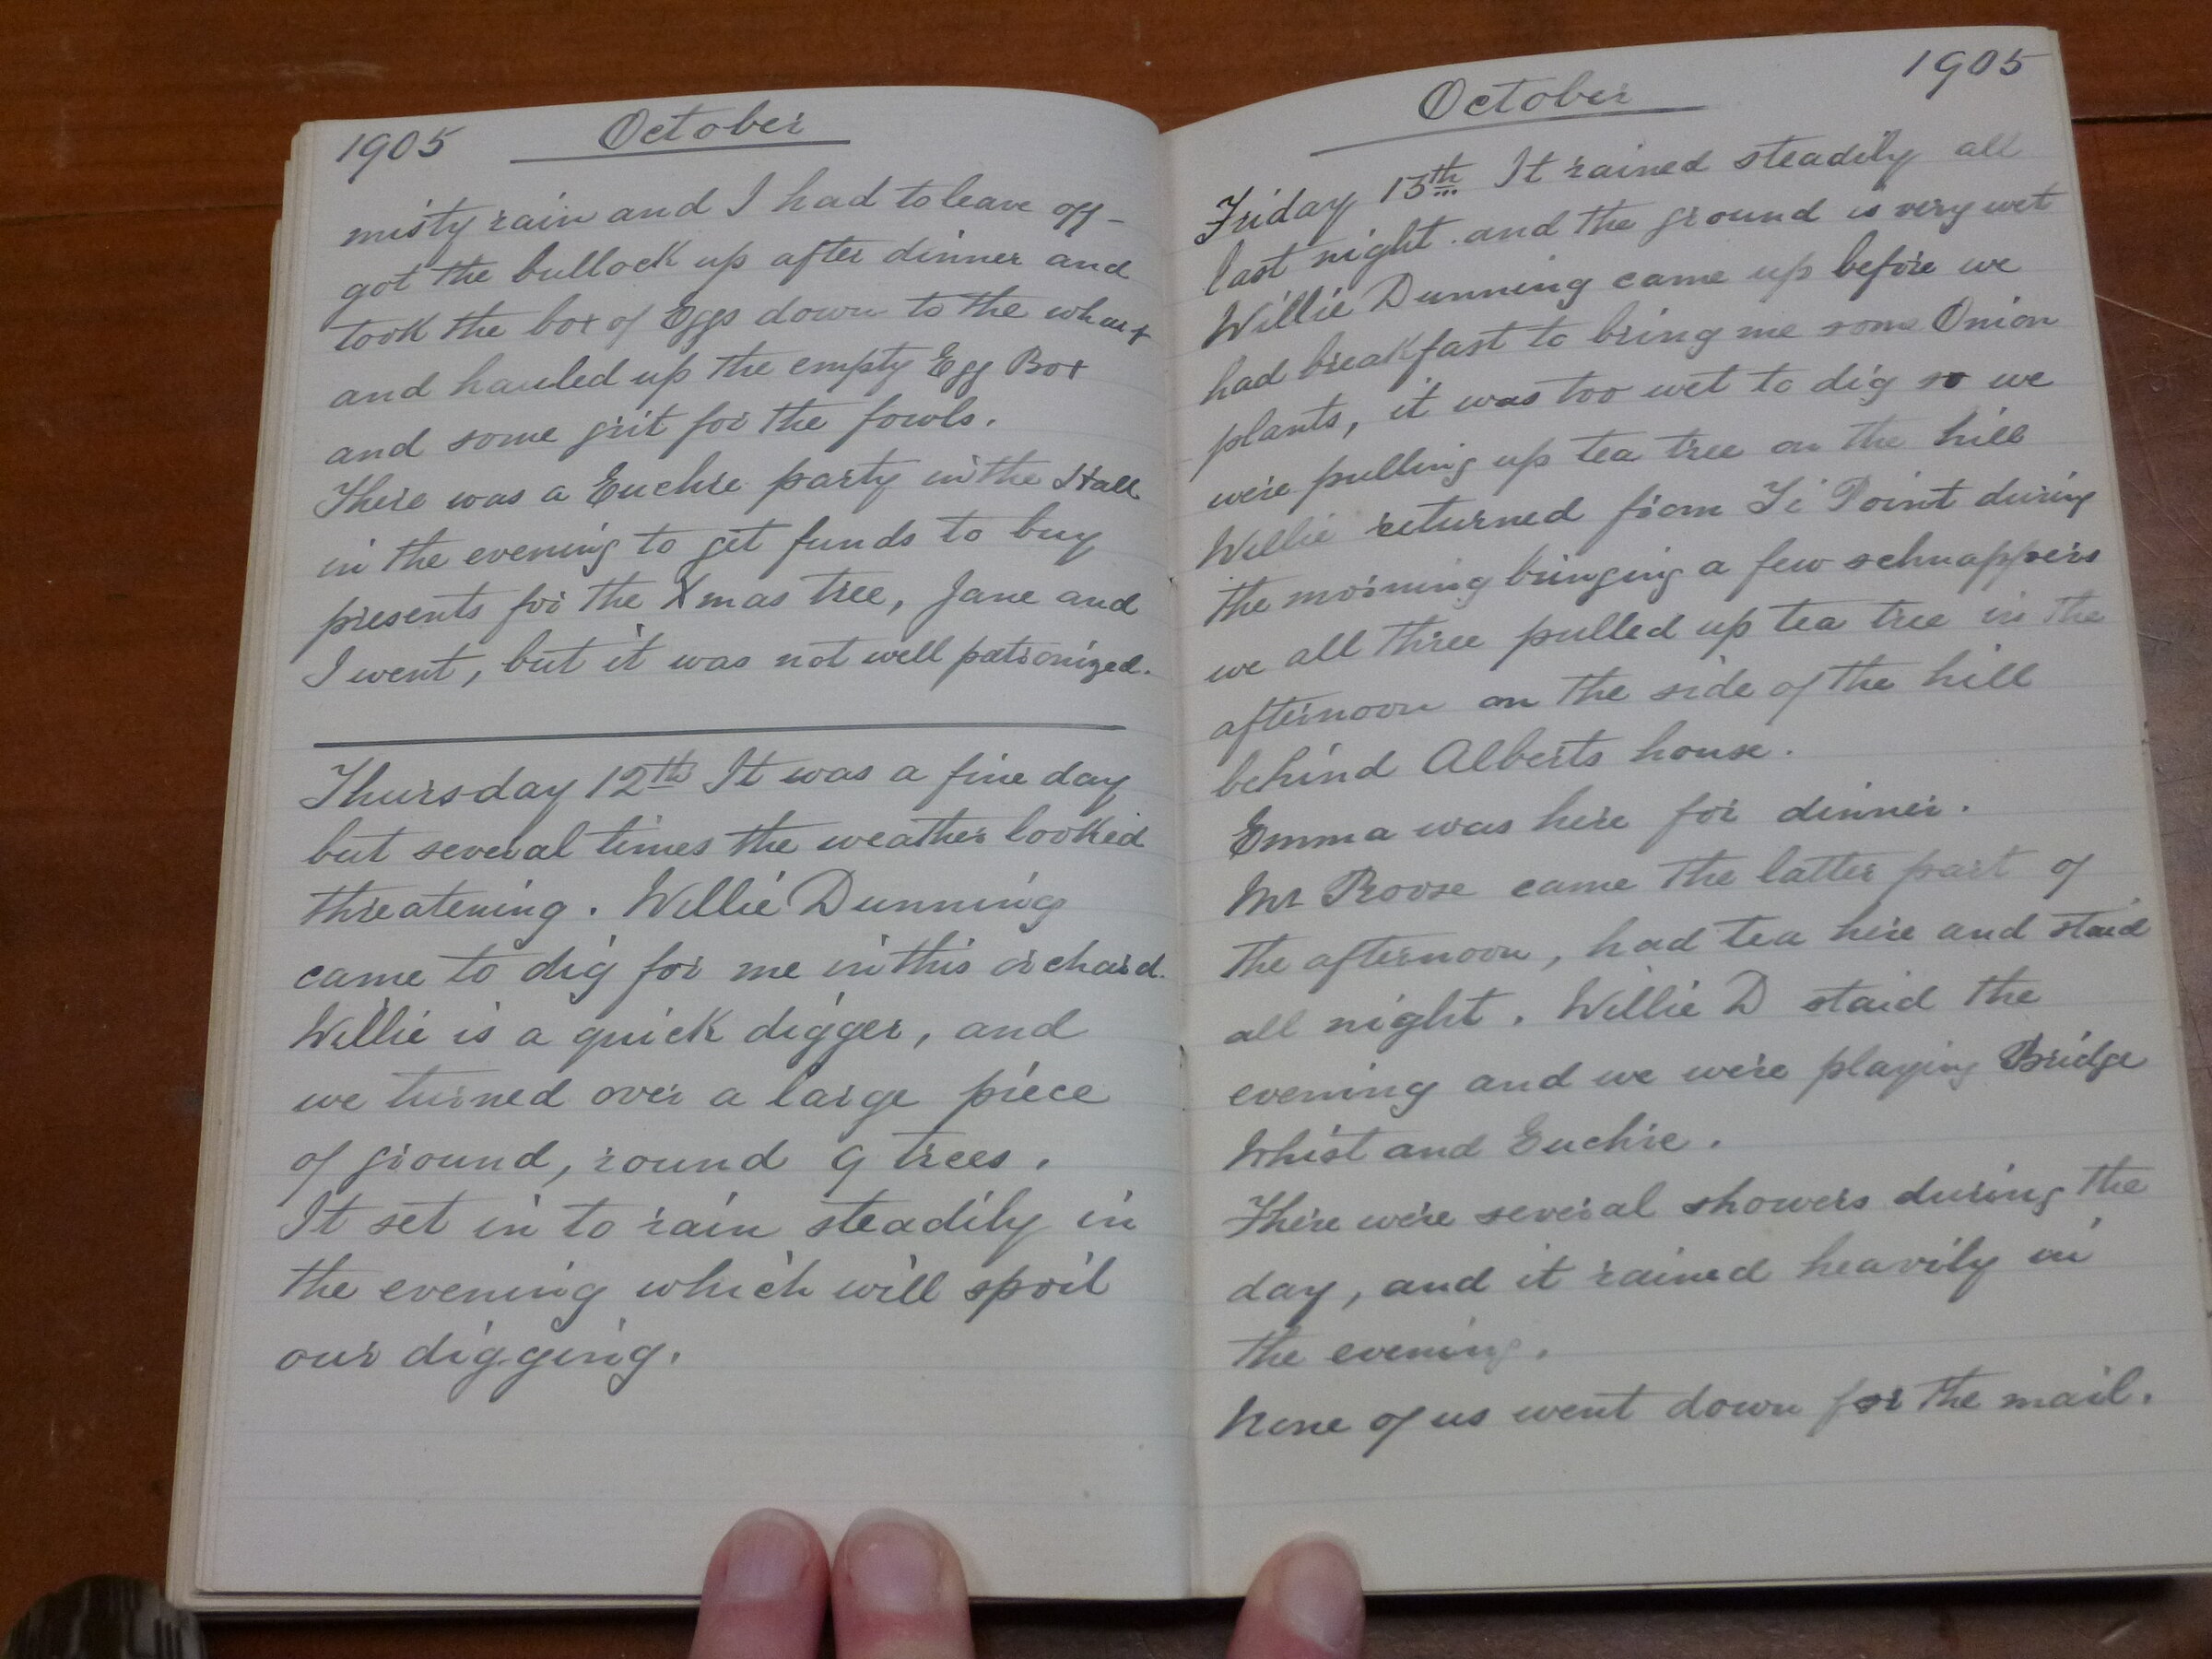 1905 October
misty rain and I had to leave off -
got the bullock up after dinner and
took the box of Eggs down to the wharf
and hauled up the empty Egg Box
and some grit for the fowls.
There was a Euchre party in the Hall
in the evening to get funds to buy
presents for the Xmas tree, Jane and
I went, but it was not well patronized.
Thursday 12th It was a fine day
but several times the weather looked
threatening. Willie Dunning
came to dig for me in this orchard.
Willie is a quick digger, and
we turned over a large piece
of ground, round 9 trees.
It set in to rain steadily in
the evening which will spoil
our digging.
October 1905
Friday 13th It rained steadily all
last night and the ground is very wet
Willie Dunning came up before we
had breakfast to bring me some Onion
plants, it was too wet to dig so we
were pulling up tea tree on the hill
Willie returned from Ti Point during
the morning bringing a few schnappers
we all three pulled up tea tree in the
afternoon on the side of the hill
behind Alberts house.
Emma was here for dinner.
Mr Roose came the latter part of
the afternoon, had tea here and staid
all night. Willie D staid the
evening and we were playing Bridge
Whist and Euchre.
There were several showers during the
day, and it rained heavily in
the evening.
None of us went down for the mail.